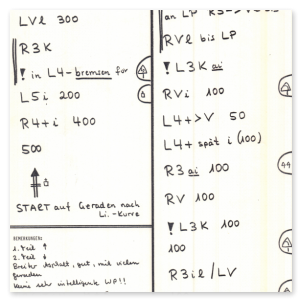 LVl 300
R3K
! in L4-bremsen for
L5i 200
R4+i 400
500
START auf Geraden nach
Li.-Kurve
BEMERKUNGEN:
1. Teil ↑
2. Teil ↓
Breiter Asphalt, gut, mit vielen
Geraden
Keine sehr intelligente WP!!
an LP R3->
RVl bis LP
! L3K ai
RVi 100
L4+>V 50
L4+ spät i (100)
R3 ai 100
RV 100
! L3K 100
100
R3il/LV